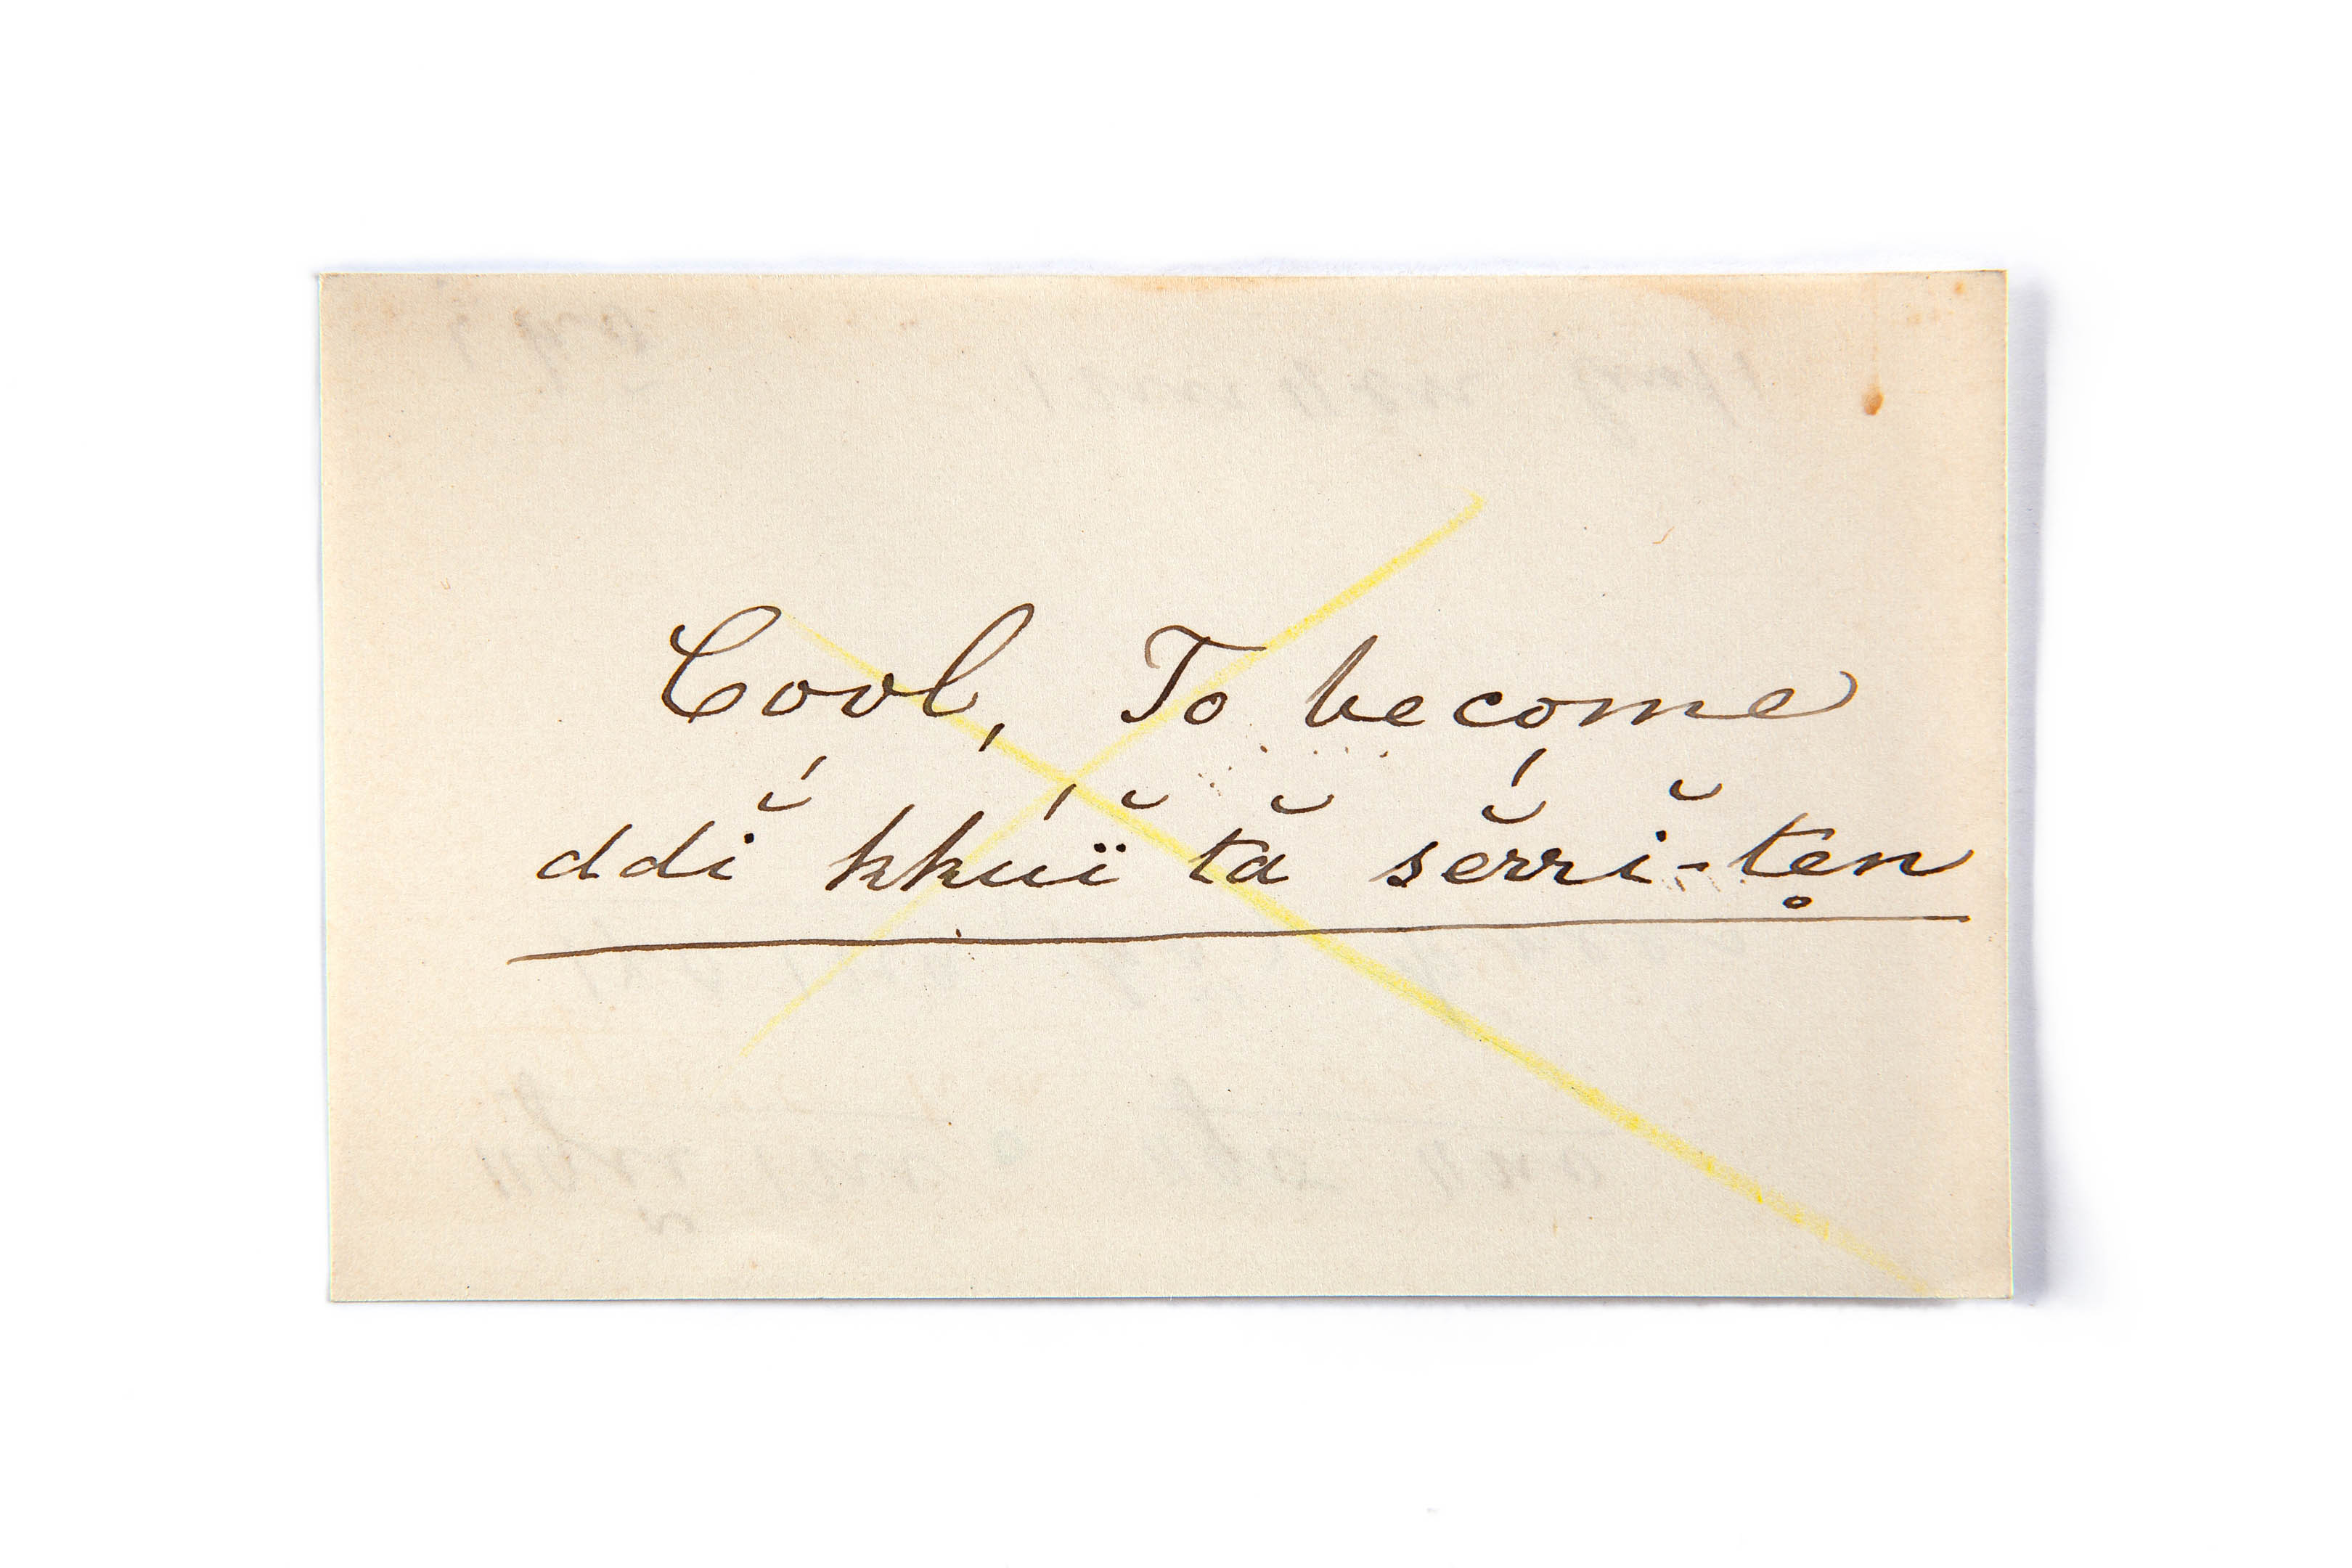 Cool, To become
ddĭ́ kkúï̆ tă sĕ́rri-tĕn̥